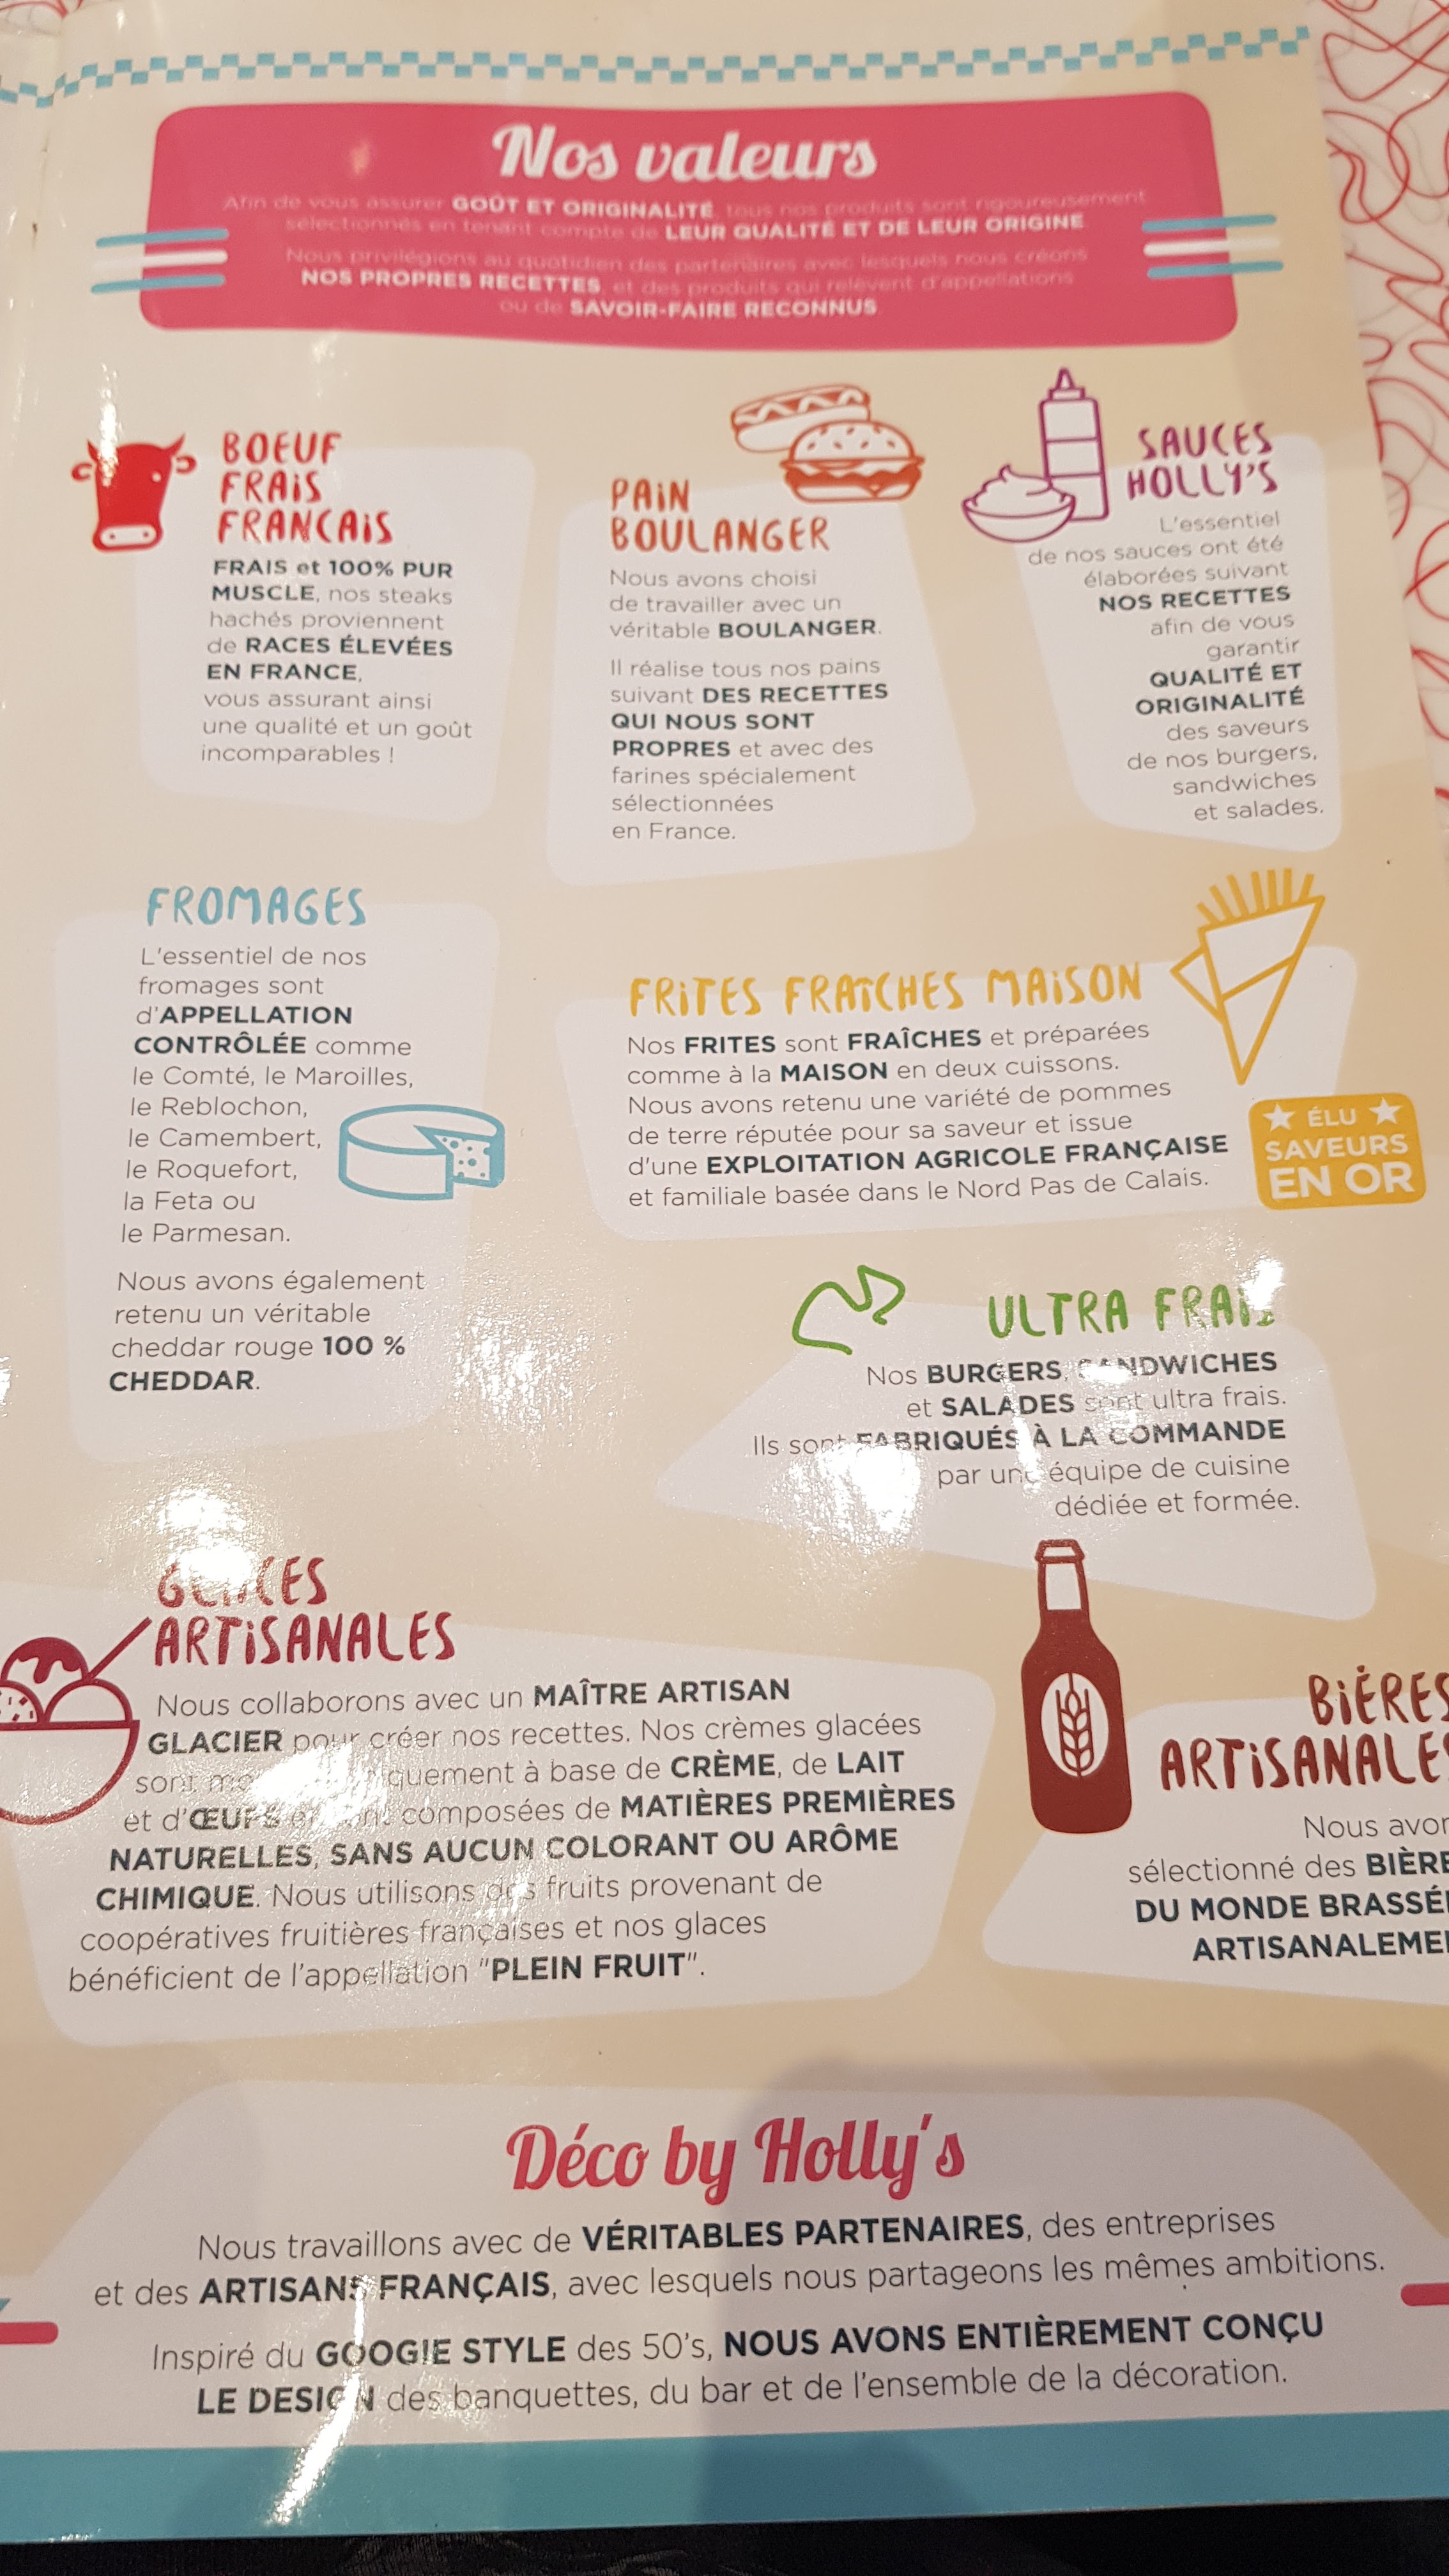 Nos valeurs
Afin de vous assurer GOÛT ET ORIGINALITÉ, tous nos produits sont rigoureusement
sélectionnés en tenant compte de LEUR QUALITÉ ET DE LEUR ORIGINE
Nous privilégions au quotidien des partenaires avec lesquels nous créons
NOS PROPRES RECETTES, et des produits qui relèvent d'appellations
ou de SAVOIR-FAIRE RECONNUS
BOEUF
FRAIS
FRANCAIS
FRAIS et 100% PUR
MUSCLE, nos steaks
hachés proviennent
de RACES ÉLEVÉES
EN FRANCE,
vous assurant ainsi
une qualité et un goût
incomparables !
PAIN
BOULANGER
Nous avons choisi
de travailler avec un
véritable BOULANGER.
Il réalise tous nos pains
suivant DES RECETTES
QUI NOUS SONT
PROPRES et avec des
farines spécialement
sélectionnées
en France.
SAUCES
HOLLY'S
L'essentiel
de nos sauces ont été
élaborées suivant
NOS RECETTES
afin de vous
garantir
QUALITÉ ET
ORIGINALITÉ
des saveurs
de nos burgers,
sandwiches
et salades.
FROMAGES
L'essentiel de nos
fromages sont
d'APPELLATION
CONTRÔLÉE comme
le Comté, le Maroilles,
le Reblochon,
le Camembert,
le Roquefort,
la Feta ou
le Parmesan.
Nous avons également
retenu un véritable
cheddar rouge 100 %
CHEDDAR.
FRITES FRAÎCHES MAISON
Nos FRITES sont FRAÎCHES et préparées
comme à la MAISON en deux cuissons.
Nous avons retenu une variété de pommes
de terre réputée pour sa saveur et issue
d'une EXPLOITATION AGRICOLE FRANÇAISE
et familiale basée dans le Nord Pas de Calais.
ÉLU
SAVEURS
EN OR
ULTRA FRAIS
Nos BURGERS, SANDWICHES
et SALADES sont ultra frais.
Ils sont FABRIQUÉS À LA COMMANDE
par une équipe de cuisine
dédiée et formée.
GLACES
ARTISANALES
Nous collaborons avec un MAÎTRE ARTISAN
GLACIER pour créer nos recettes. Nos crèmes glacées
sont à base de CRÈME, de LAIT
et d'ŒUFS et sont composées de MATIÈRES PREMIÈRES
NATURELLES, SANS AUCUN COLORANT OU ARÔME
CHIMIQUE. Nous utilisons des fruits provenant de
coopératives fruitières françaises et nos glaces
bénéficient de l'appellation "PLEIN FRUIT".
BIÈRES
ARTISANALES
Nous avon
sélectionné des BIÈRE
DU MONDE BRASSÉE
ARTISANALEME
Déco by Holly's
Nous travaillons avec de VÉRITABLES PARTENAIRES, des entreprises
et des ARTISANS FRANÇAIS, avec lesquels nous partageons les mêmes ambitions.
Inspiré du GOOGIE STYLE des 50's, NOUS AVONS ENTIÈREMENT CONÇU
LE DESIGN des banquettes, du bar et de l'ensemble de la décoration.